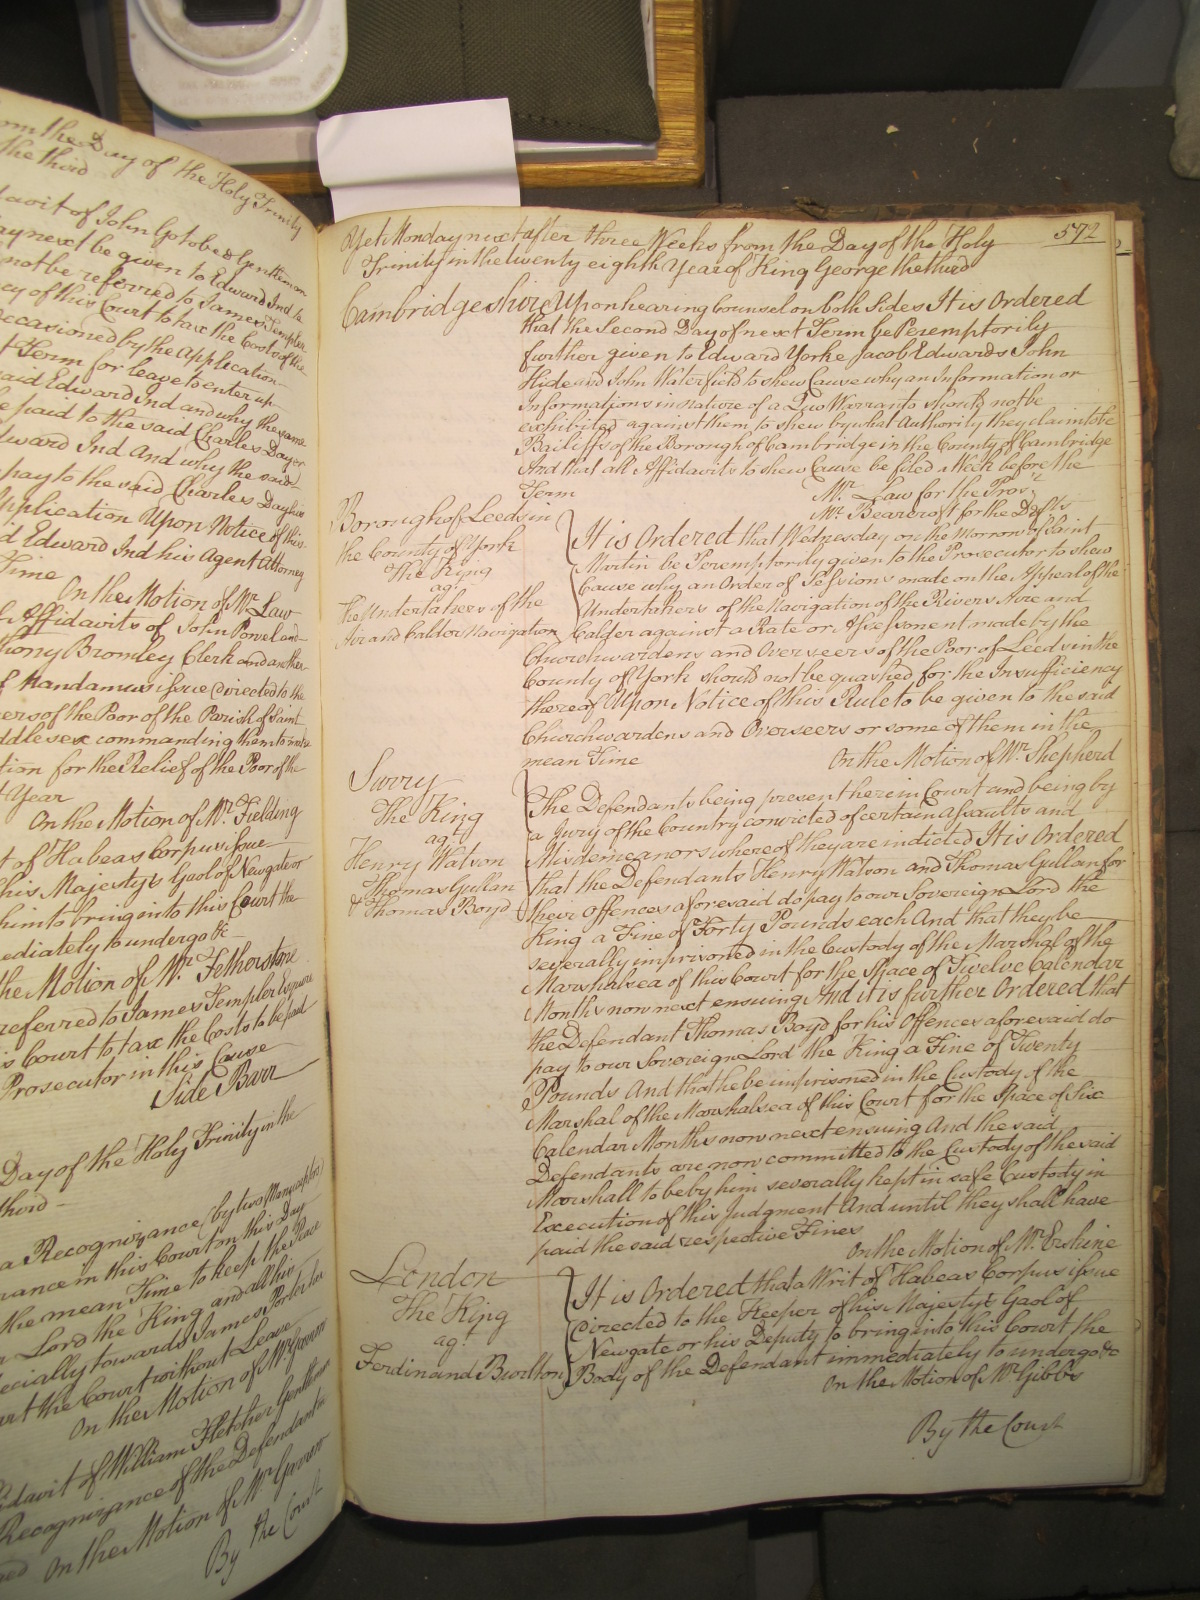 om the Day of the Holy Trinity
the third
davit of John Gotobed Gentleman
ay next be given to Edward Ind to
not be referred to James Templer
cy of this Court to tax the Costs of the
occasioned by the Application
t Term for leave to enter up
said Edward Ind and why the same
e paid to the said Charles Dayer
dward Ind And why the said
pay to the said Charles Day
Application Upon Notice of this
d Edward Ind his Agent Attorney
Time
On the Motion of Mr. Law
Affidavits of John Powel and
hony Bromley Clerk and another
f Mandamus issue directed to the
eers of the Poor of the Parish of Saint
ddlesex commanding them to
tion for the Relief of the Poor of the
t Year
On the Motion of Mr. Fielding
t of Habeas Corpus issue
his Majestys Gaol of Newgate or
him to bring into this Court the
ediately to undergo &c
the Motion of Mr. Fetherston
referred to James Templer Esquire
is Court to tax the Costs to be paid
Prosecutor in this Cause
Side Barr
Day of the Holy Trinity in the
third
a Recognizance (by two Manucaptors)
rance in this Court on this Day
the mean Time to keep the Peace
Lord the King and all his
ecially towards James Porter
art the Court without Leave
On the Motion of Mr. Garrow
idavit of William Fletcher Gentleman
Recognizance of the Defendant
On the Motion of Mr. Garrow
By the Court
572
Yet Monday next after three Weeks from the Day of the Holy
Trinity in the twenty eighth Year of King George the third
Cambridgeshire Upon hearing Counsel on both Sides It is Ordered
that the Second Day of next Term be Peremptorily
further given to Edward Yorke Jacob Edwards John
Hide and John Waterfield to shew Cause why an Information or
Informations in nature of a Quo Warranto should not be
exhibited against them to shew by what Authority they claim to be
Bailiffs of the Borough of Cambridge in the County of Cambridge
And that all Affidavits to shew Cause be filed a Week before the
Term
Mr. Law for the Pros.r
Mr. Bearcroft for the Defts
Borough of Leeds in
the County of York
The King
agt.
The Undertakers of the
Air and Calder Navigation
It is Ordered that Wednesday on the Morrow of Saint
Martin be Peremptorily given to the Prosecutor to shew
Cause why an Order of Sessions made on the Appeal of the
Undertakers of the Navigation of the Rivers Aire and
Calder against a Rate or Assessment made by the
Churchwardens and Overseers of the Poor of Leeds in the
County of York should not be quashed for the Insufficiency
thereof Upon Notice of this Rule to be given to the said
Churchwardens and Overseers or some of them in the
mean Time
On the Motion of Mr. Shepherd
Surry
The King
agt.
Henry Watson
Thomas Gullan
& Thomas Boyd
The Defendants being present here in Court and being by
a Jury of the Country convicted of certain Assaults and
Misdemeanors whereof they are indicted It is Ordered
that the Defendants Henry Watson and Thomas Gullan for
their Offences aforesaid do pay to our Sovereign Lord the
King a Fine of Forty Pounds each And that they be
severally imprisoned in the Custody of the Marshal of the
Marshalsea of this Court for the Space of Twelve Calendar
Months now next ensuing And it is further Ordered that
the Defendant Thomas Boyd for his Offences aforesaid do
pay to our Sovereign Lord the King a Fine of Twenty
Pounds And that he be imprisoned in the Custody of the
Marshal of the Marshalsea of this Court for the Space of Six
Calendar Months now next ensuing And the said
Defendants are now committed to the Custody of the said
Marshall to be by him severally kept in safe Custody in
Execution of this Judgment And until they shall have
paid the said respective Fines
On the Motion of Mr. Erskine
London
The King
agt.
Ferdinand
It is Ordered that a Writ of Habeas Corpus issue
directed to the Keeper of his Majestys Gaol of
Newgate or his Deputy to bring into this Court the
Body of the Defendant immediately to undergo &c
On the Motion of Mr. Gibbs
By the Court